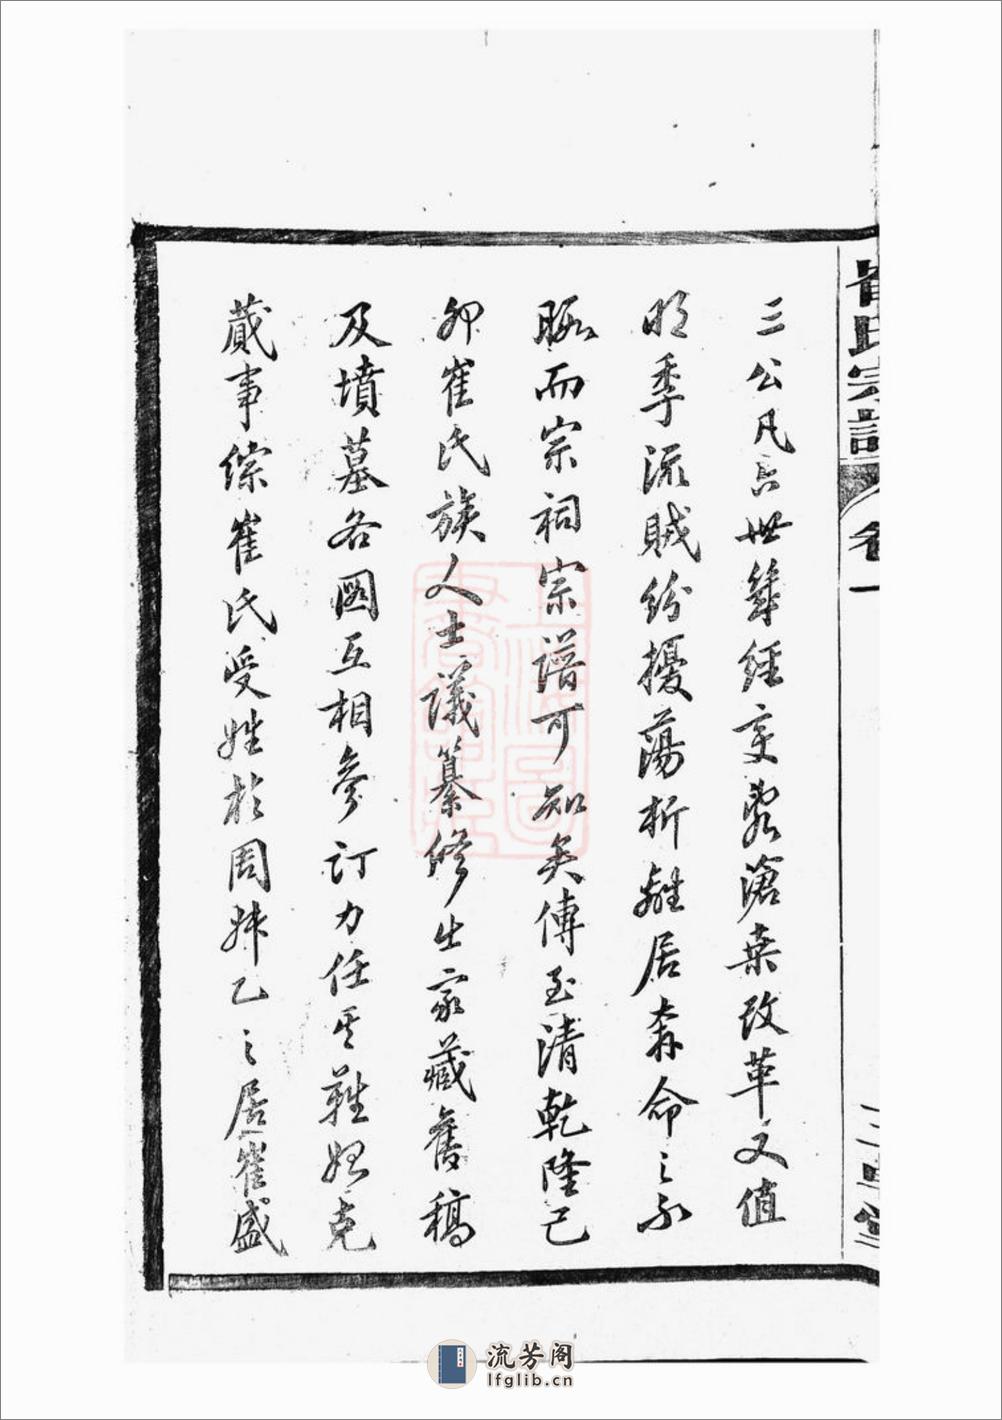 崔氏宗譜
卷一
三公凡六世第經變亂滄桑改革又值
明季流賊紛擾蕩析離居奔命之不
暇而宗祠宗譜可知矣傳至清乾隆己
卯崔氏族人士議纂修出家藏舊稿
及墳墓各圖互相參訂力任其難始克
蕆事綜崔氏受姓於周姓乙之居崔盛
流芳阁
lfglib.cn